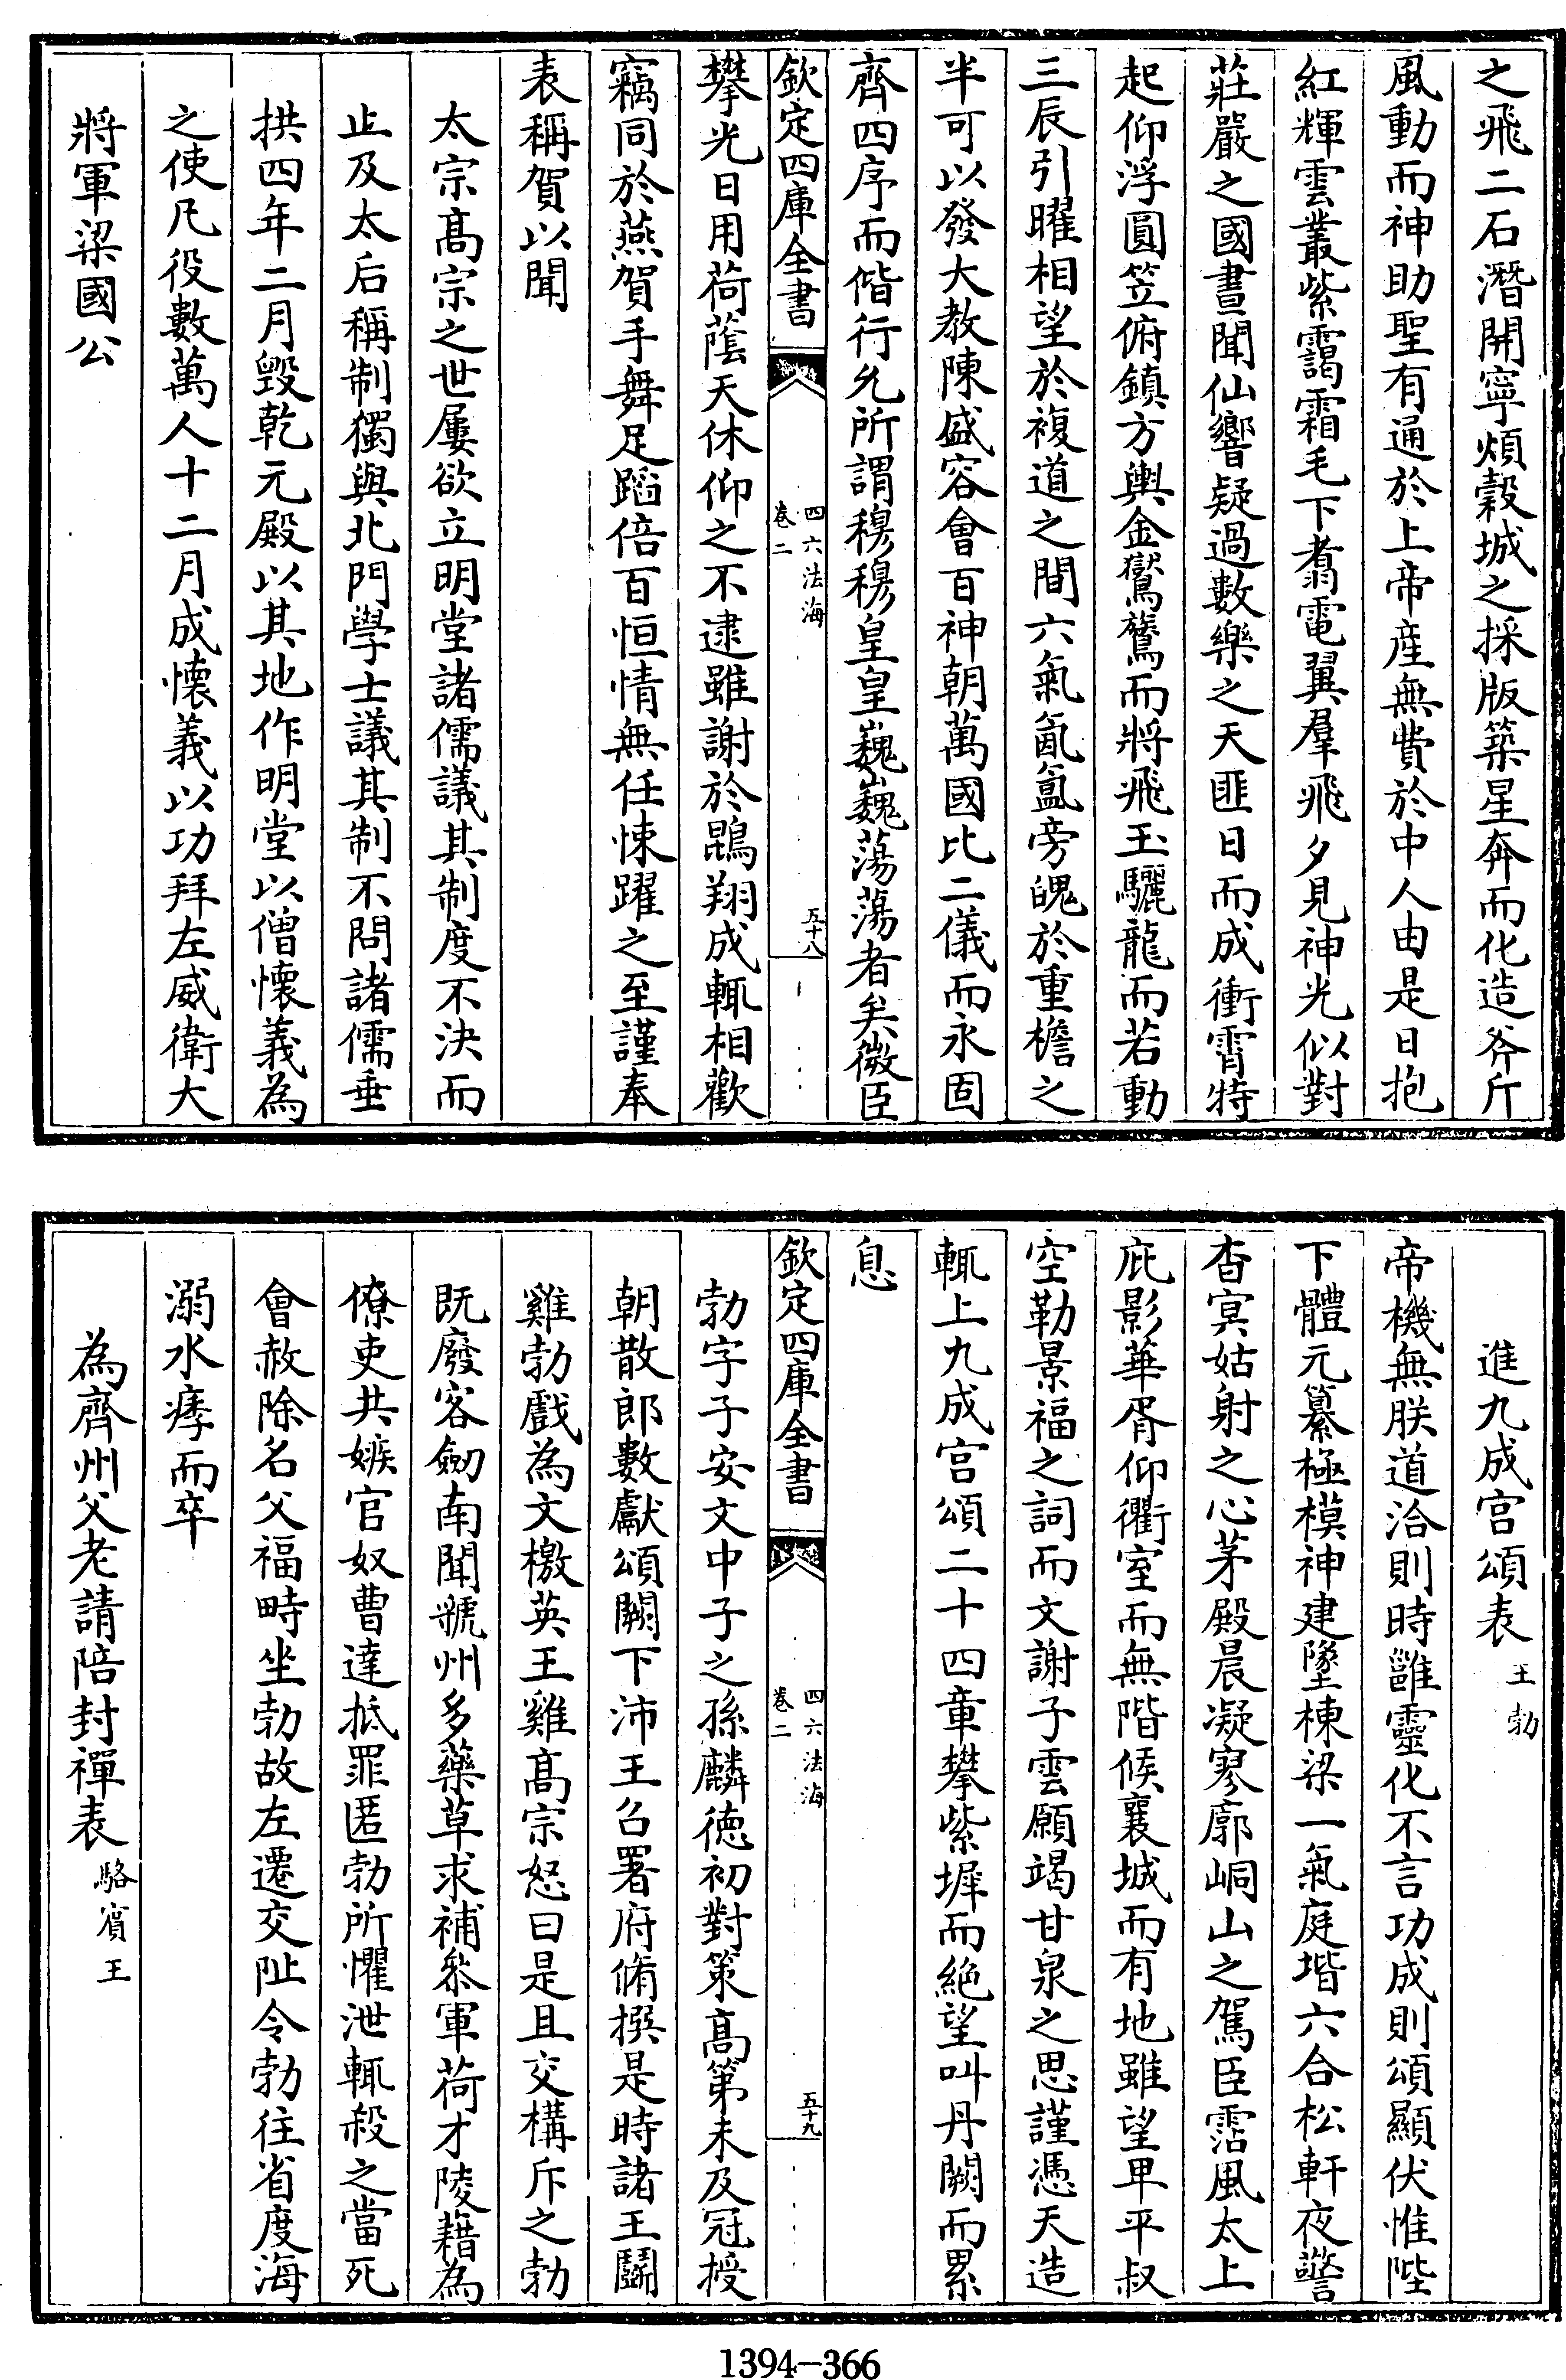 之飛二石潛開寧煩穀城之採版築星奔而化造斧斤
風動而神助聖有通於上帝産無費於中人由是日抱
紅輝雲叢紫靄霜毛下翥電翼羣飛夕見神光似對
莊嚴之國晝聞仙響疑過數樂之天匪日而成衝霄特
起仰浮圓笠俯鎮方輿金鸑鷟而將飛玉驪龍而若動
三辰引曜相望於複道之間六氣氤氲旁魄於重檐之
半可以發大教陳盛容會百神朝萬國比二儀而永固
齊四序而偕行允所謂穆穆皇皇巍巍蕩蕩者矣微臣
欽定四庫全書
四六法海
卷二
五十八
攀光日用荷蔭天休仰之不逮雖謝於鵾翔成輒相歡
竊同於燕賀手舞足蹈倍百恒情無任悚躍之至謹奉
表稱賀以聞
太宗髙宗之世屢欲立明堂諸儒議其制度不決而
止及太后稱制獨與北門學士議其制不問諸儒垂
拱四年二月毀乾元殿以其地作明堂以僧懷義為
之使凡役數萬人十二月成懷義以功拜左威衛大
將軍梁國公
進九成宫頌表
王勃
帝機無朕道洽則時雝靈化不言功成則頌顯伏惟陛
下體元纂極模神建墬棟梁一氣庭堦六合松軒夜警
杳冥姑射之心茅殿晨凝寥廓峒山之駕臣霑風太上
庇影華胥仰衢室而無階候襄城而有地雖望界平叔
空勒景福之詞而文謝子雲願竭甘泉之思謹憑天造
輒上九成宫頌二十四章攀紫墀而絶望叫丹闕而累
息
欽定四庫全書
四六法海
卷二
五十九
勃字子安文中子之孫麟徳初對策髙第未及冠授
朝散郎數獻頌闕下沛王召署府脩撰是時諸王鬭
雞勃戲為文檄英王雞髙宗怒曰是且交構斥之勃
既廢客劒南聞虢州多藥草求補叅軍荷才陵藉為
僚吏共嫉官奴曹達抵罪匿勃所懼泄輒殺之當死
會赦除名父福畤坐勃故左遷交阯令勃往省度海
溺水痵而卒
為齊州父老請陪封禪表
駱賓王
1394-366